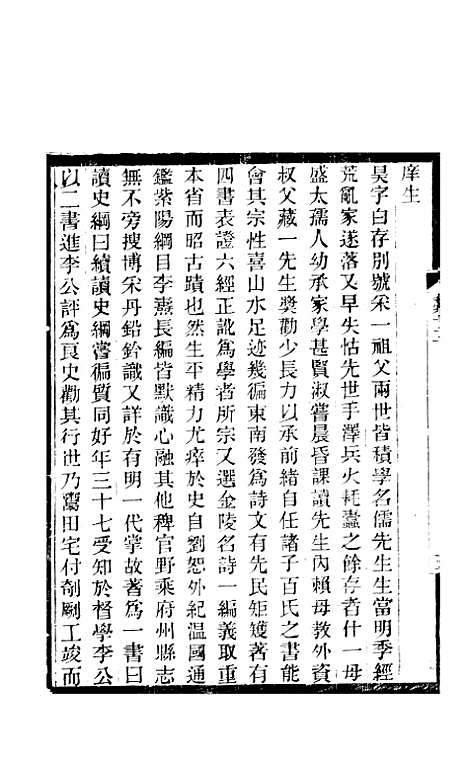 庠生
昊字白存別號采一祖父兩世皆積學名儒先生生當明季經
荒亂家遂落又早失怙先世手澤兵火耗蠹之餘存者什一母
盛太孺人幼承家學甚賢淑嘗晨昏課讀先生內賴母教外資
叔父藏一先生獎勸少長力以承前緒自任諸子百氏之書能
會其宗性喜山水足迹幾徧東南發爲詩文有先民矩矱著有
四書表證六經正訛爲學者所宗又選金陵名詩一編義取重
本省而昭古蹟也然生平精力尤瘁於史自劉恕外紀溫國通
鑑紫陽綱目李燾長編皆默識心融其他稗官野乘府州縣志
無不旁搜博采丹鉛鈐識又詳於有明一代掌故著爲一書曰
讀史綱曰續讀史綱蓍徧質同好年三十七受知於督學李公
以二書進李公評爲良史勸其行世乃鬻田宅付剞劂工竣而